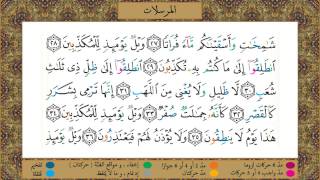 المرسلات
شَٰمِخَٰتٍ وَأَسْقَيْنَٰكُم مَّآءً فُرَاتًا ﴿٢٧﴾ وَيْلٌ يَوْمَئِذٍ لِّلْمُكَذِّبِينَ ﴿٢٨﴾
ٱنطَلِقُوٓا۟ إِلَىٰ مَا كُنتُم بِهِۦ تُكَذِّبُونَ ﴿٢٩﴾ ٱنطَلِقُوٓا۟ إِلَىٰ ظِلٍّ ذِى ثَلَٰثِ
شُعَبٍ ﴿٣٠﴾ لَّا ظَلِيلٍ وَلَا يُغْنِى مِنَ ٱللَّهَبِ ﴿٣١﴾ إِنَّهَا تَرْمِى بِشَرَرٍ
كَٱلْقَصْرِ ﴿٣٢﴾ كَأَنَّهُۥ جِمَٰلَتٌ صُفْرٌ ﴿٣٣﴾ وَيْلٌ يَوْمَئِذٍ لِّلْمُكَذِّبِينَ ﴿٣٤﴾
هَٰذَا يَوْمُ لَا يَنطِقُونَ ﴿٣٥﴾ وَلَا يُؤْذَنُ لَهُمْ فَيَعْتَذِرُونَ ﴿٣٦﴾ وَيْلٌ يَوْمَئِذٍ